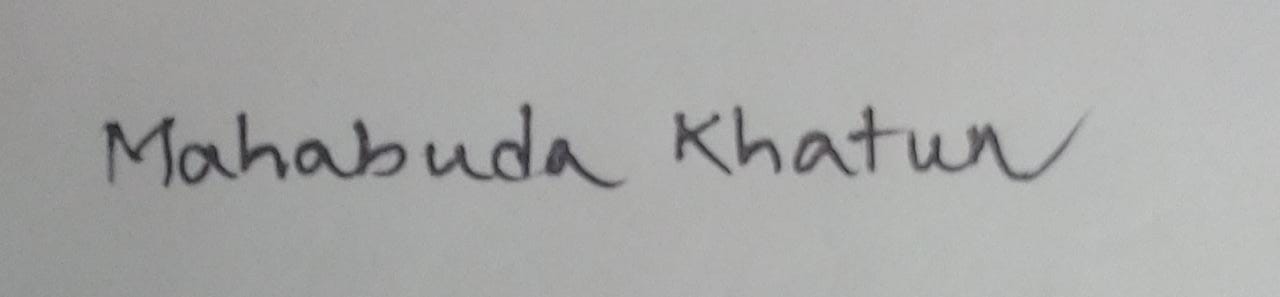 Mahabuda Khatun